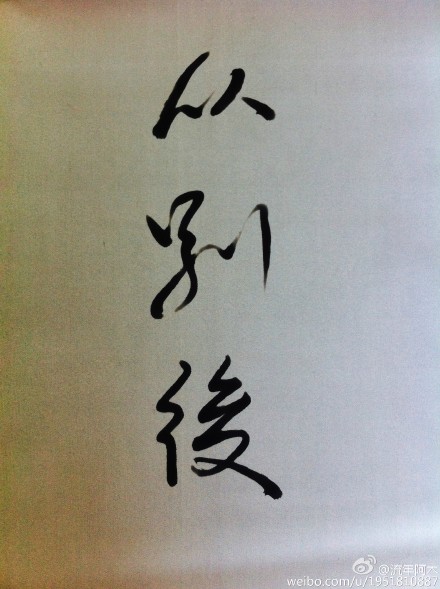 从别後
@流年阿杰
weibo.com/u/1951810887